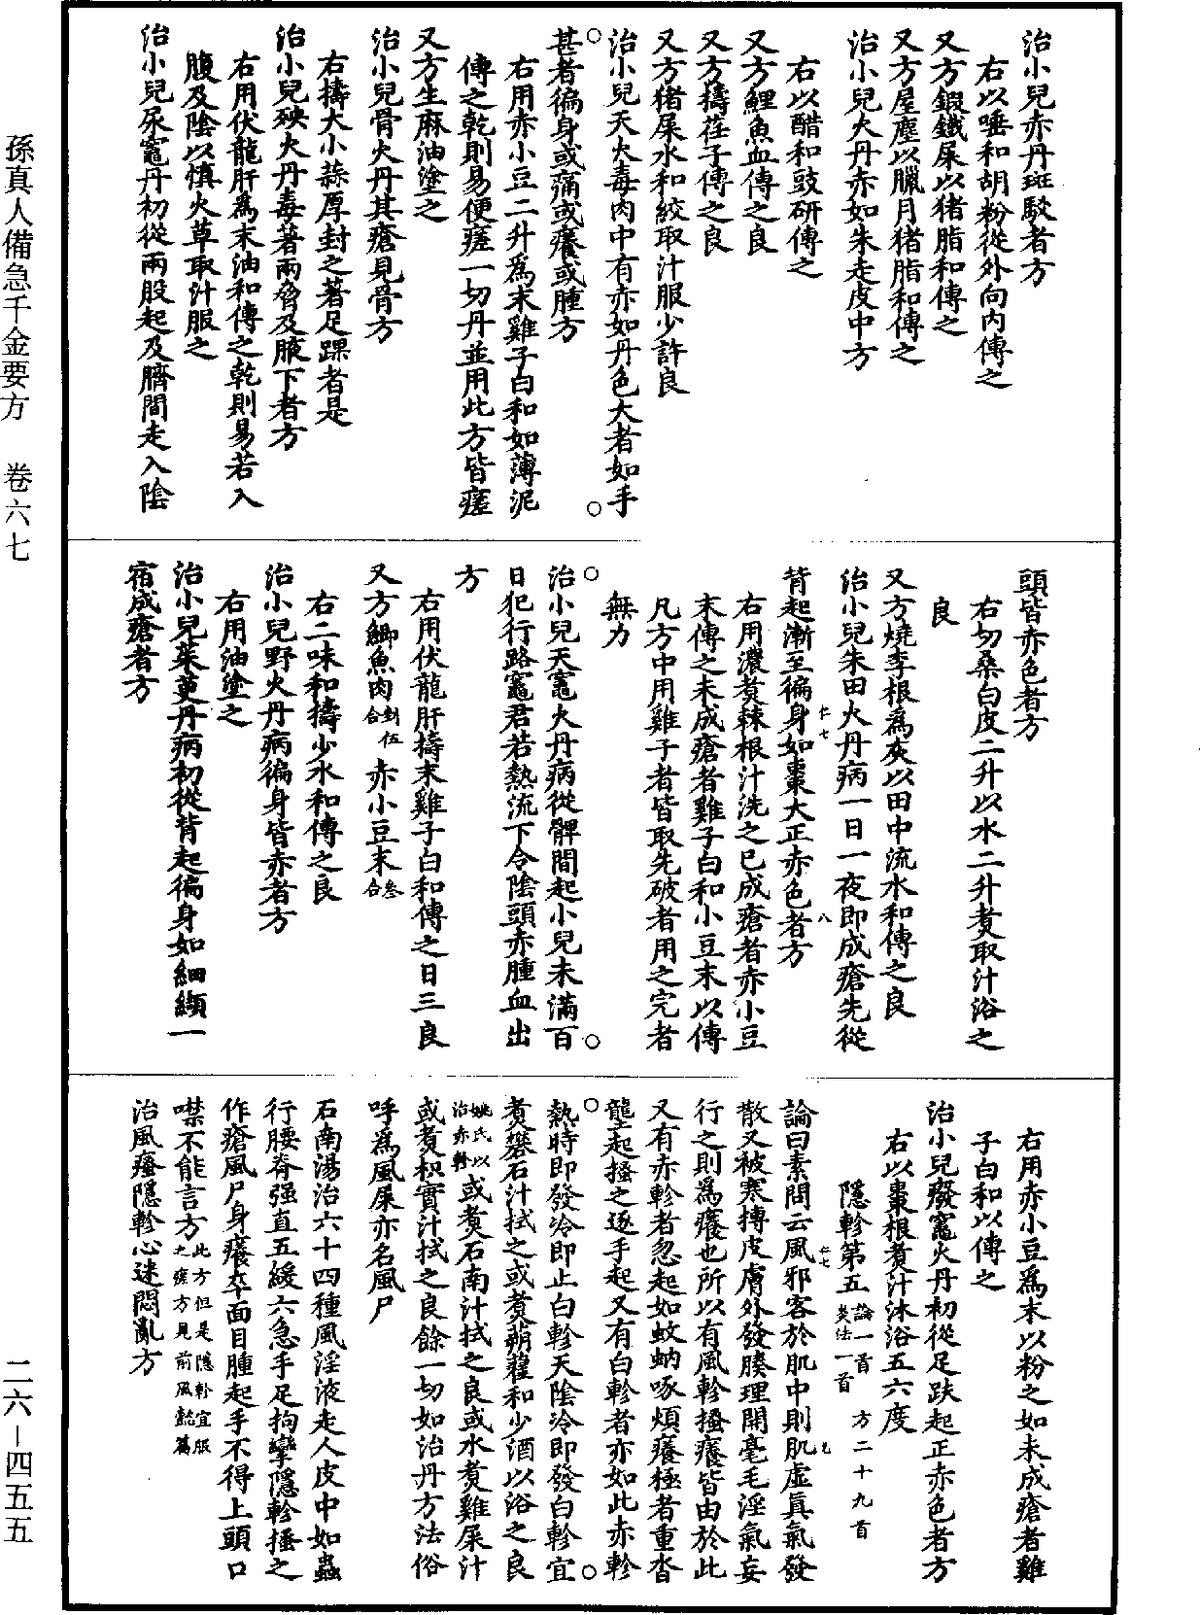 治小兒赤丹斑駁者方
右以唾和胡粉從外向內傅之
又方鍜鐵屎以猪脂和傅之
又方屋塵以臘月猪脂和傅之
治小兒火丹赤如朱走皮中方
右以醋和豉研傅之
又方鯉魚血傅之良
又方擣荏子傅之良
又方猪屎水和絞取汁服少許良
治小兒天火毒肉中有赤如丹色大者如手
甚者徧身或痛或癢或腫方
右用赤小豆二升爲末雞子白和如薄泥
傅之乾則易便瘥一切丹並用此方皆瘥
又方生麻油塗之
治小兒骨火丹其瘡見骨方
右擣大小蒜厚封之著足踝者是
治小兒殃火丹毒著兩脅及腋下者方
右用伏龍肝爲末油和傅之乾則易若入
腹及陰以慎火草取汁服之
治小兒尿竈丹初從兩股起及臍間走入陰
頭皆赤色者方
右切桑白皮二升以水二升煑取汁浴之
良
又方燒李根爲灰以田中流水和傅之良
治小兒朱田火丹病一日一夜即成瘡先從
背起漸至徧身如棗大正赤色者方
右用濃煑棘根汁洗之已成瘡者赤小豆
末傅之未成瘡者雞子白和小豆末以傅
凡方中用雞子者皆取先破者用之完者
無力
治小兒天竈火丹病從髀間起小兒未滿百
日犯行路竈君若熱流下令陰頭赤腫血出
方
右用伏龍肝擣末雞子白和傅之日三良
又方鯽魚肉剉伍合 赤小豆末叁合
右二味和擣少水和傅之良
治小兒野火丹病徧身皆赤者方
右用油塗之
治小兒茱萸丹病初從背起徧身如細纈一
宿成瘡者方
右用赤小豆爲末以粉之如未成瘡者雞
子白和以傅之
治小兒廢竈火丹初從足趺起正赤色者方
右以棗根煑汁沐浴五六度
隱軫第五 論一首 方二十九首 灸法一首
論曰素問云風邪客於肌中則肌虛眞氣發
散又被寒搏皮膚外發腠理開毫毛淫氣妄
行之則爲癢也所以有風軫搔癢皆由於此
又有赤軫者忽起如蚊蚋啄煩癢極者重沓
壟起搔之逐手起又有白軫者亦如此赤軫
熱時即發冷即止白軫天陰冷即發白軫宜
煑礬石汁拭之或煑蒴藋和少酒以浴之良
姚氏以治赤軫 或煑石南汁拭之良或水煑雞屎汁
或煑枳實汁拭之良餘一切如治丹方法俗
呼爲風屎亦名風尸
石南湯治六十四種風淫液走人皮中如蟲
行腰脊强直五緩六急手足拘攣隱軫搔之
作瘡風尸身癢卒面目腫起手不得上頭口
噤不能言方 此方但是隱軫宜服之瘥方見前風懿篇
治風瘙隱軫心迷悶亂方
孫真人備急千金要方 卷六七
二六－四五五